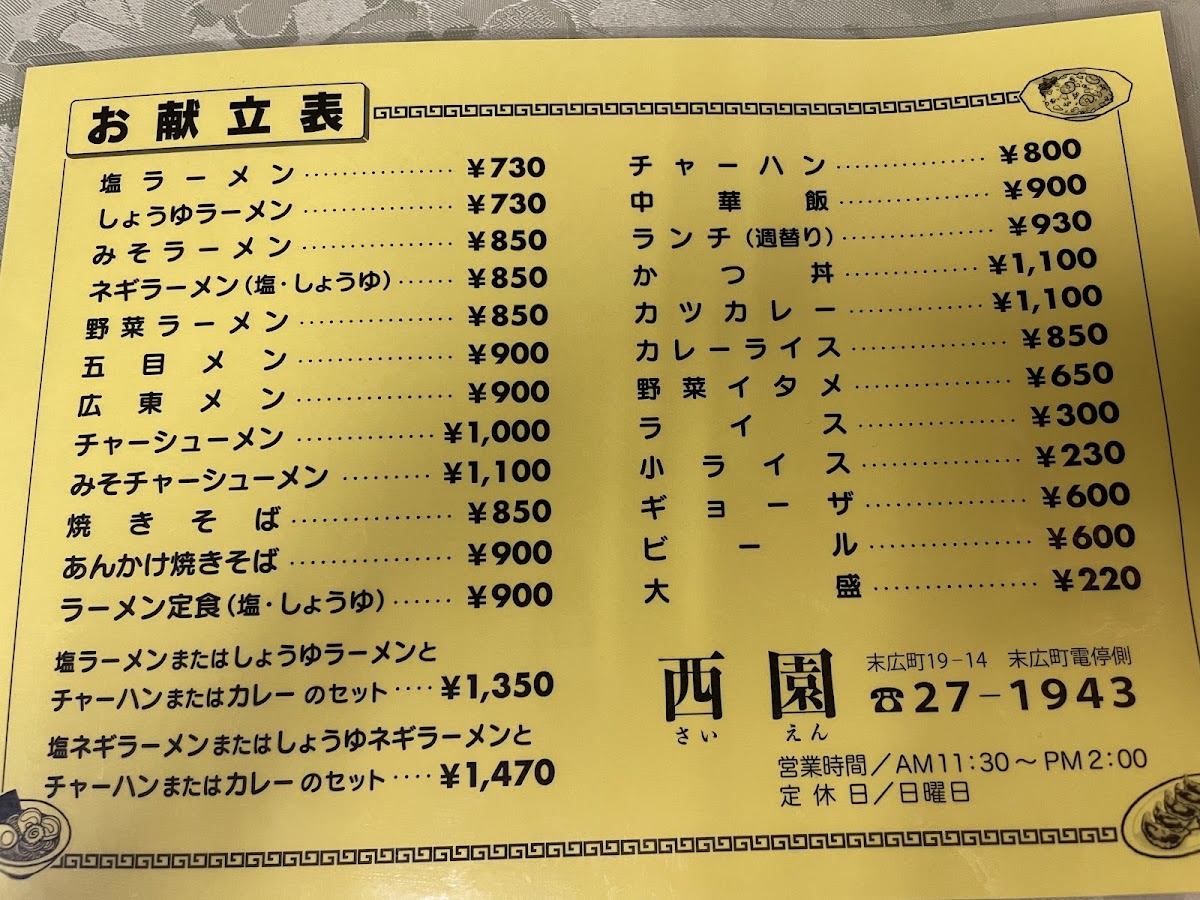 お献立表
塩ラーメン ‥‥‥‥‥‥ ¥730
しょうゆラーメン ‥‥‥‥‥‥ ¥730
みそラーメン ‥‥‥‥‥‥ ¥850
ネギラーメン(塩・しょうゆ) ‥‥‥ ¥850
野菜ラーメン ‥‥‥‥‥‥ ¥850
五目メン ‥‥‥‥‥‥ ¥900
広東メン ‥‥‥‥‥‥ ¥900
チャーシューメン ‥‥‥‥‥‥ ¥1,000
みそチャーシューメン ‥‥‥‥ ¥1,100
焼きそば ‥‥‥‥‥‥ ¥850
あんかけ焼きそば ‥‥‥‥‥‥ ¥900
ラーメン定食(塩・しょうゆ) ‥‥‥ ¥900
塩ラーメンまたはしょうゆラーメンと
チャーハンまたはカレーのセット ‥‥ ¥1,350
塩ネギラーメンまたはしょうゆネギラーメンと
チャーハンまたはカレーのセット ‥‥ ¥1,470
チャーハン ‥‥‥‥‥‥ ¥800
中華飯 ‥‥‥‥‥‥ ¥900
ランチ(週替り) ‥‥‥‥‥‥ ¥930
かつ丼 ‥‥‥‥‥‥ ¥1,100
カツカレー ‥‥‥‥‥‥ ¥1,100
カレーライス ‥‥‥‥‥‥ ¥850
野菜イタメ ‥‥‥‥‥‥ ¥650
ライス ‥‥‥‥‥‥ ¥300
小ライス ‥‥‥‥‥‥ ¥230
ギョーザ ‥‥‥‥‥‥ ¥600
ビール ‥‥‥‥‥‥ ¥600
大盛 ‥‥‥‥‥‥ ¥220
西園
さいえん
末広町19-14 末広町電停側
☎27-1943
営業時間/AM11:30〜PM2:00
定休日/日曜日